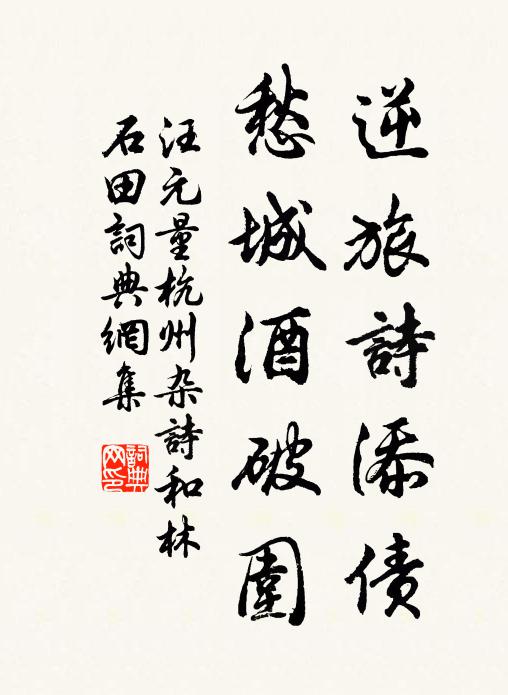 逆旅詩添債
愁城酒破圍
汪元量杭州杂詩和林
石田詞典網集
詞典网印